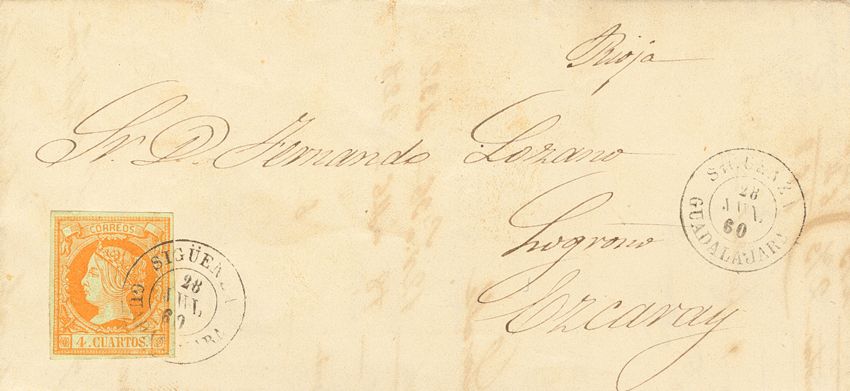 Rioja
Sr. D. Fernando Lozano
Logroño
Ezcaray
SIGÜENZA
28
JUL
60
GUADALAJARA
CORREOS
4 CUARTOS.
SIGÜENZA
28
JUL
60
GUADALAJARA